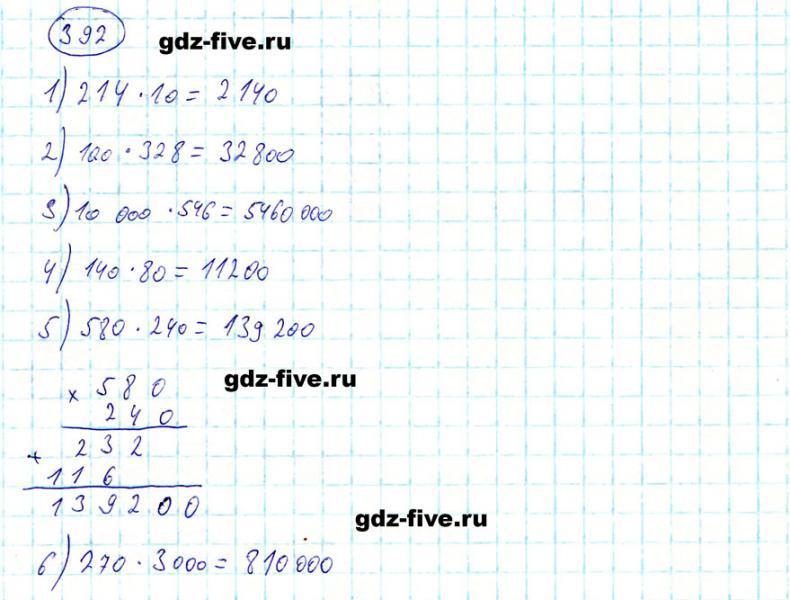 392
gdz-five.ru
1) 214 · 10 = 2140
2) 100 · 328 = 32800
3) 10 000 · 546 = 5460 000
4) 140 · 80 = 11200
5) 580 · 240 = 139 200
gdz-five.ru
x 580
240
+ 232
116
139200
gdz-five.ru
6) 270 · 3000 = 810 000